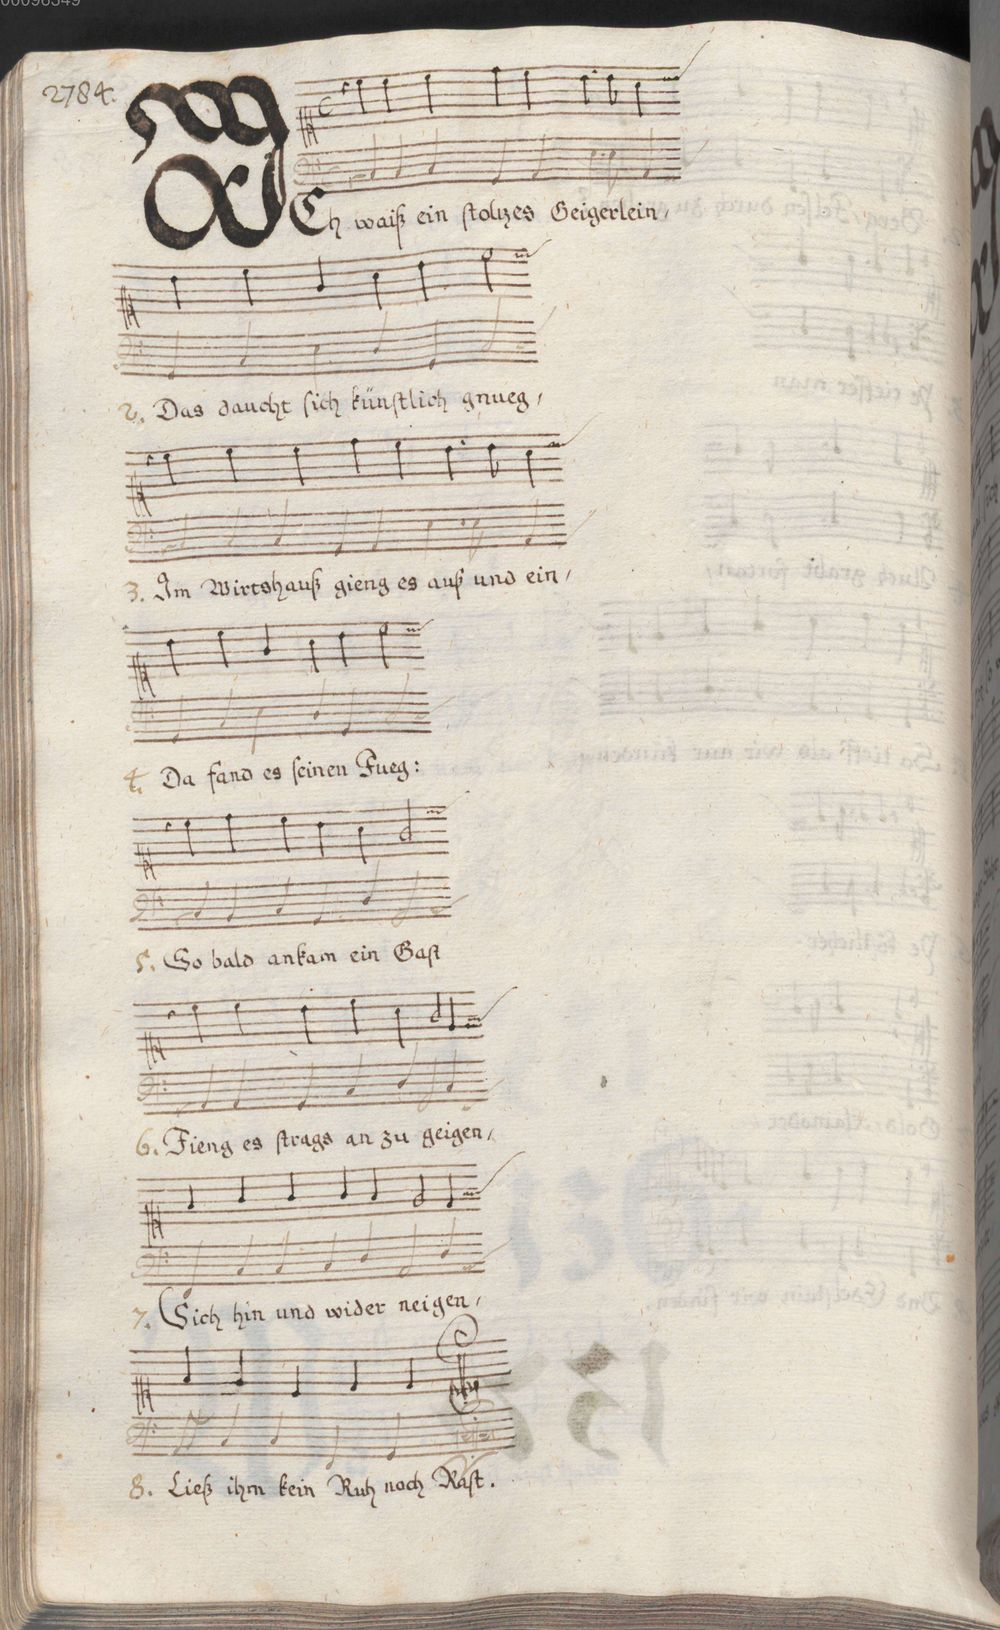 00096349
2784.
ICh waiß ein stoltzes Geigerlein,
2. Das daucht sich künstlich gnueg,
3. Im Wirtshauß gieng es auß und ein,
4. Da fand es seinen Fueg:
5. So bald ankam ein Gast
6. Fieng es strags an zu geigen,
7. Sich hin und wider neigen,
8. Ließ ihm kein Ruh noch Rast.